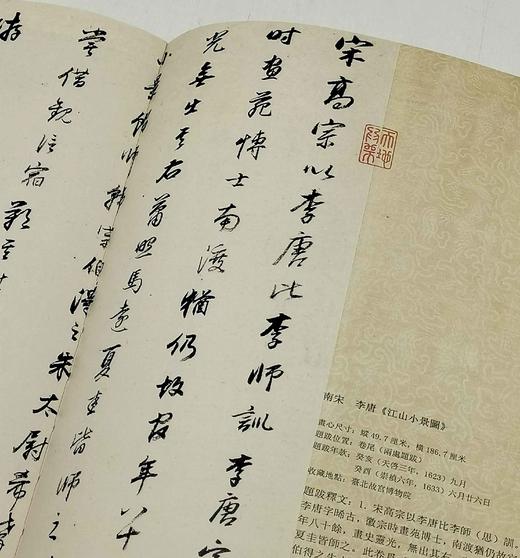 宋高宗以李唐比李師訓李唐字
時畫苑博士南渡猶仍故官年八十
光無出其右蕭照馬遠夏圭皆師之
師韓宗伯得之朱太尉希孝
嘗借觀信宿
南宋 李唐《江山小景圖》
畫心尺寸：縱49.7厘米，橫186.7厘米
題跋位置：卷尾（兩處題跋）
題跋年款：癸亥（天啓三年，1623）九月
癸酉（崇禎六年，1633）六月廿六日
收藏地點：臺北故宮博物院
題跋釋文：1. 宋高宗以李唐比李師（思）訓。
李唐字晞古，徽宗時畫苑博士，南渡猶仍故
年八十餘，畫史靈光，無出其右
夏圭皆師之。此卷
伯得之朱